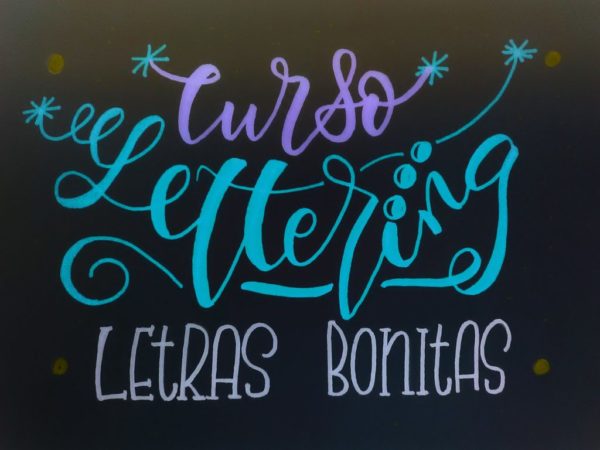 Curso
Lettering
LEtRAS BONitAS